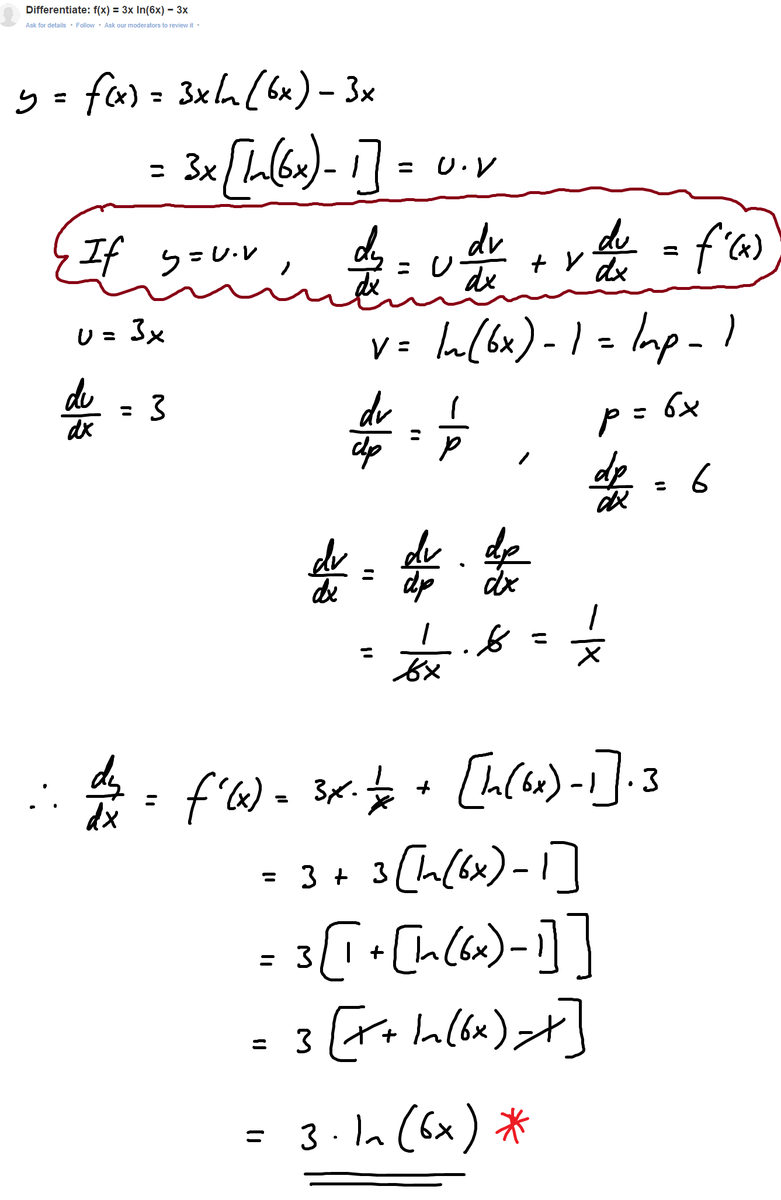 Differentiate: f(x) = 3x ln(6x) − 3x
Ask for details • Follow • Ask our moderators to review it •
y = f(x) = 3x ln(6x) − 3x
= 3x[ln(6x) − 1] = u·v
If y = u·v , dy/dx = u dv/dx + v du/dx = f'(x)
u = 3x v = ln(6x) − 1 = ln p − 1
du/dx = 3 dv/dp = 1/p , p = 6x
dp/dx = 6
dv/dx = dv/dp · dp/dx
= 1/6x · 6 = 1/x
∴ dy/dx = f'(x) = 3x · 1/x + [ln(6x) − 1] · 3
= 3 + 3[ln(6x) − 1]
= 3[1 + [ln(6x) − 1]]
= 3[1 + ln(6x) − 1]
= 3 · ln(6x) *